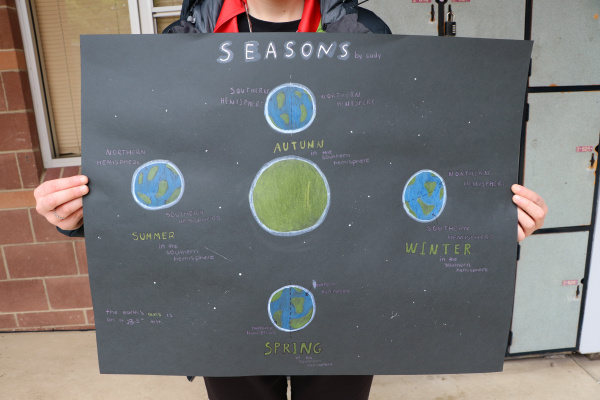 SEASONS by Judy
SOUTHERN
HEMISPHERE
NORTHERN
HEMISPHERE
AUTUMN
in the
southern
hemisphere
NORTHERN
HEMISPHERE
SOUTHERN
HEMISPHERE
SUMMER
in the
southern
hemisphere
NORTHERN
HEMISPHERE
SOUTHERN
HEMISPHERE
WINTER
in the
southern
hemisphere
SPRING
in the
the earth's axis is
on a 23.5°